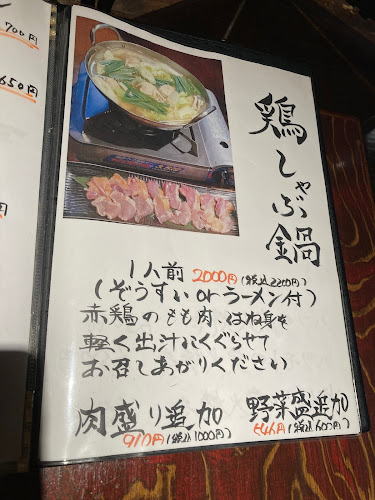 700円
650円
円
鶏しゃぶ鍋
1人前 2000円(税込2200円)
(ぞうすい or ラーメン付)
赤鶏のもも肉、はね身を
軽く出汁にくぐらせて
お召しあがりください
肉盛り追加
910円(税込1000円)
野菜盛追加
546円(税込600円)